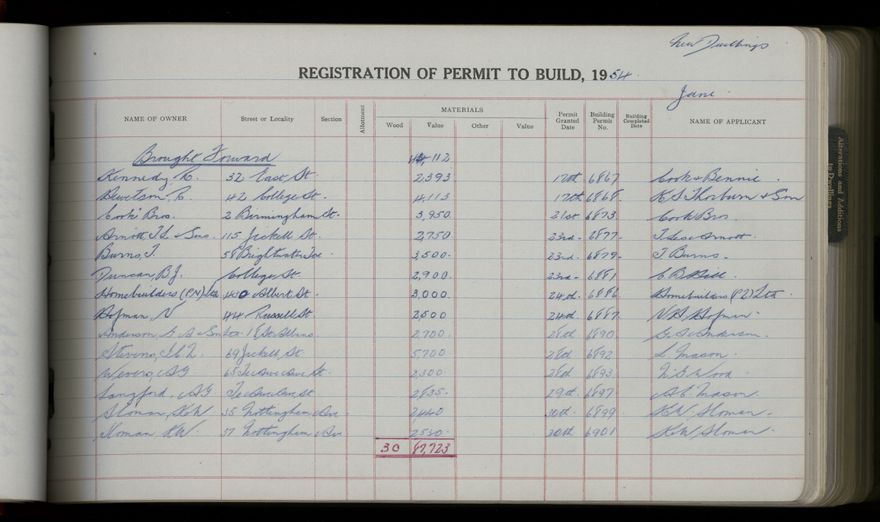 New Dwellings
REGISTRATION OF PERMIT TO BUILD, 1954.
June
NAME OF OWNER Street or Locality Section Allotment MATERIALS Wood Value Other Value Permit Granted Date Building Permit No. Building Completed Date NAME OF APPLICANT
Brought Forward 112
Kennedy, K. 32 East St. 2,393 17th 6867 Cook & Bennie.
42 College St. 4,113 17th 6868 Thorburn & Son
Cook Bros. 2 Birmingham St. 3,950 21st 6873 Cook Bros.
Arnott & Sons. 115 Jickell St. 2,750 23rd 6877 Arnott.
Burns, T. 58 3,500 23rd 6879 T Burns.
Duncan, B.J. College St. 2,900 23rd 6881 Bell
Homebuilders (P.N) Ltd 400 Albert St. 3,000 24th 6886 Homebuilders (P.N) Ltd.
Hofman, N 44 Russell St. 2500 24th 6887 Hofman.
Anderson, G. A & Son St Albans 2,700 28th 6890 Anderson.
Stevens, 69 Jickell St. 5,700 28th 6892 Mason.
Te Awe Awe St. 2,300 28th 6893 Wood.
Langford, Te Awe Awe St 2835 29th 6897 Mason.
Sloman, K.W 35 Nottingham Ave 2440 30th 6899 K.W. Sloman.
Sloman, K.W. 37 Nottingham Ave 2530 30th 6901 K.W. Sloman.
30 87,723
Alterations and Additions to Dwellings